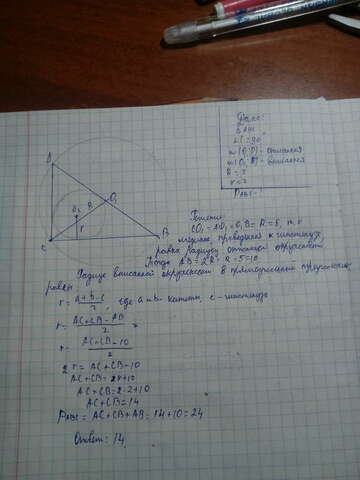 Дано:
Δ ABC
∠C = 90
ω(O; R) - описанная
ω(O; r) - вписанная
R = 5
r = 2
P ABC - ?
A
O₁
O₂
R
r
C
B
Решение
CO₁ = AO₁ = O₁B = R = 5, т.к
медиана, проведённая к гипотенузе,
равна радиусу описанной окружности
Тогда AB = 2R = 2 · 5 = 10
Радиус вписанной окружности в прямоугольный треугольник
равен
r = a + b - c / 2, где a и b - катеты, c - гипотенуза
r = AC + CB - AB / 2
r = AC + CB - 10 / 2
2r = AC + CB - 10
AC + CB = 2r + 10
AC + CB = 2 · 2 + 10
AC + CB = 14
P ABC = AC + CB + AB = 14 + 10 = 24
Ответ: 14